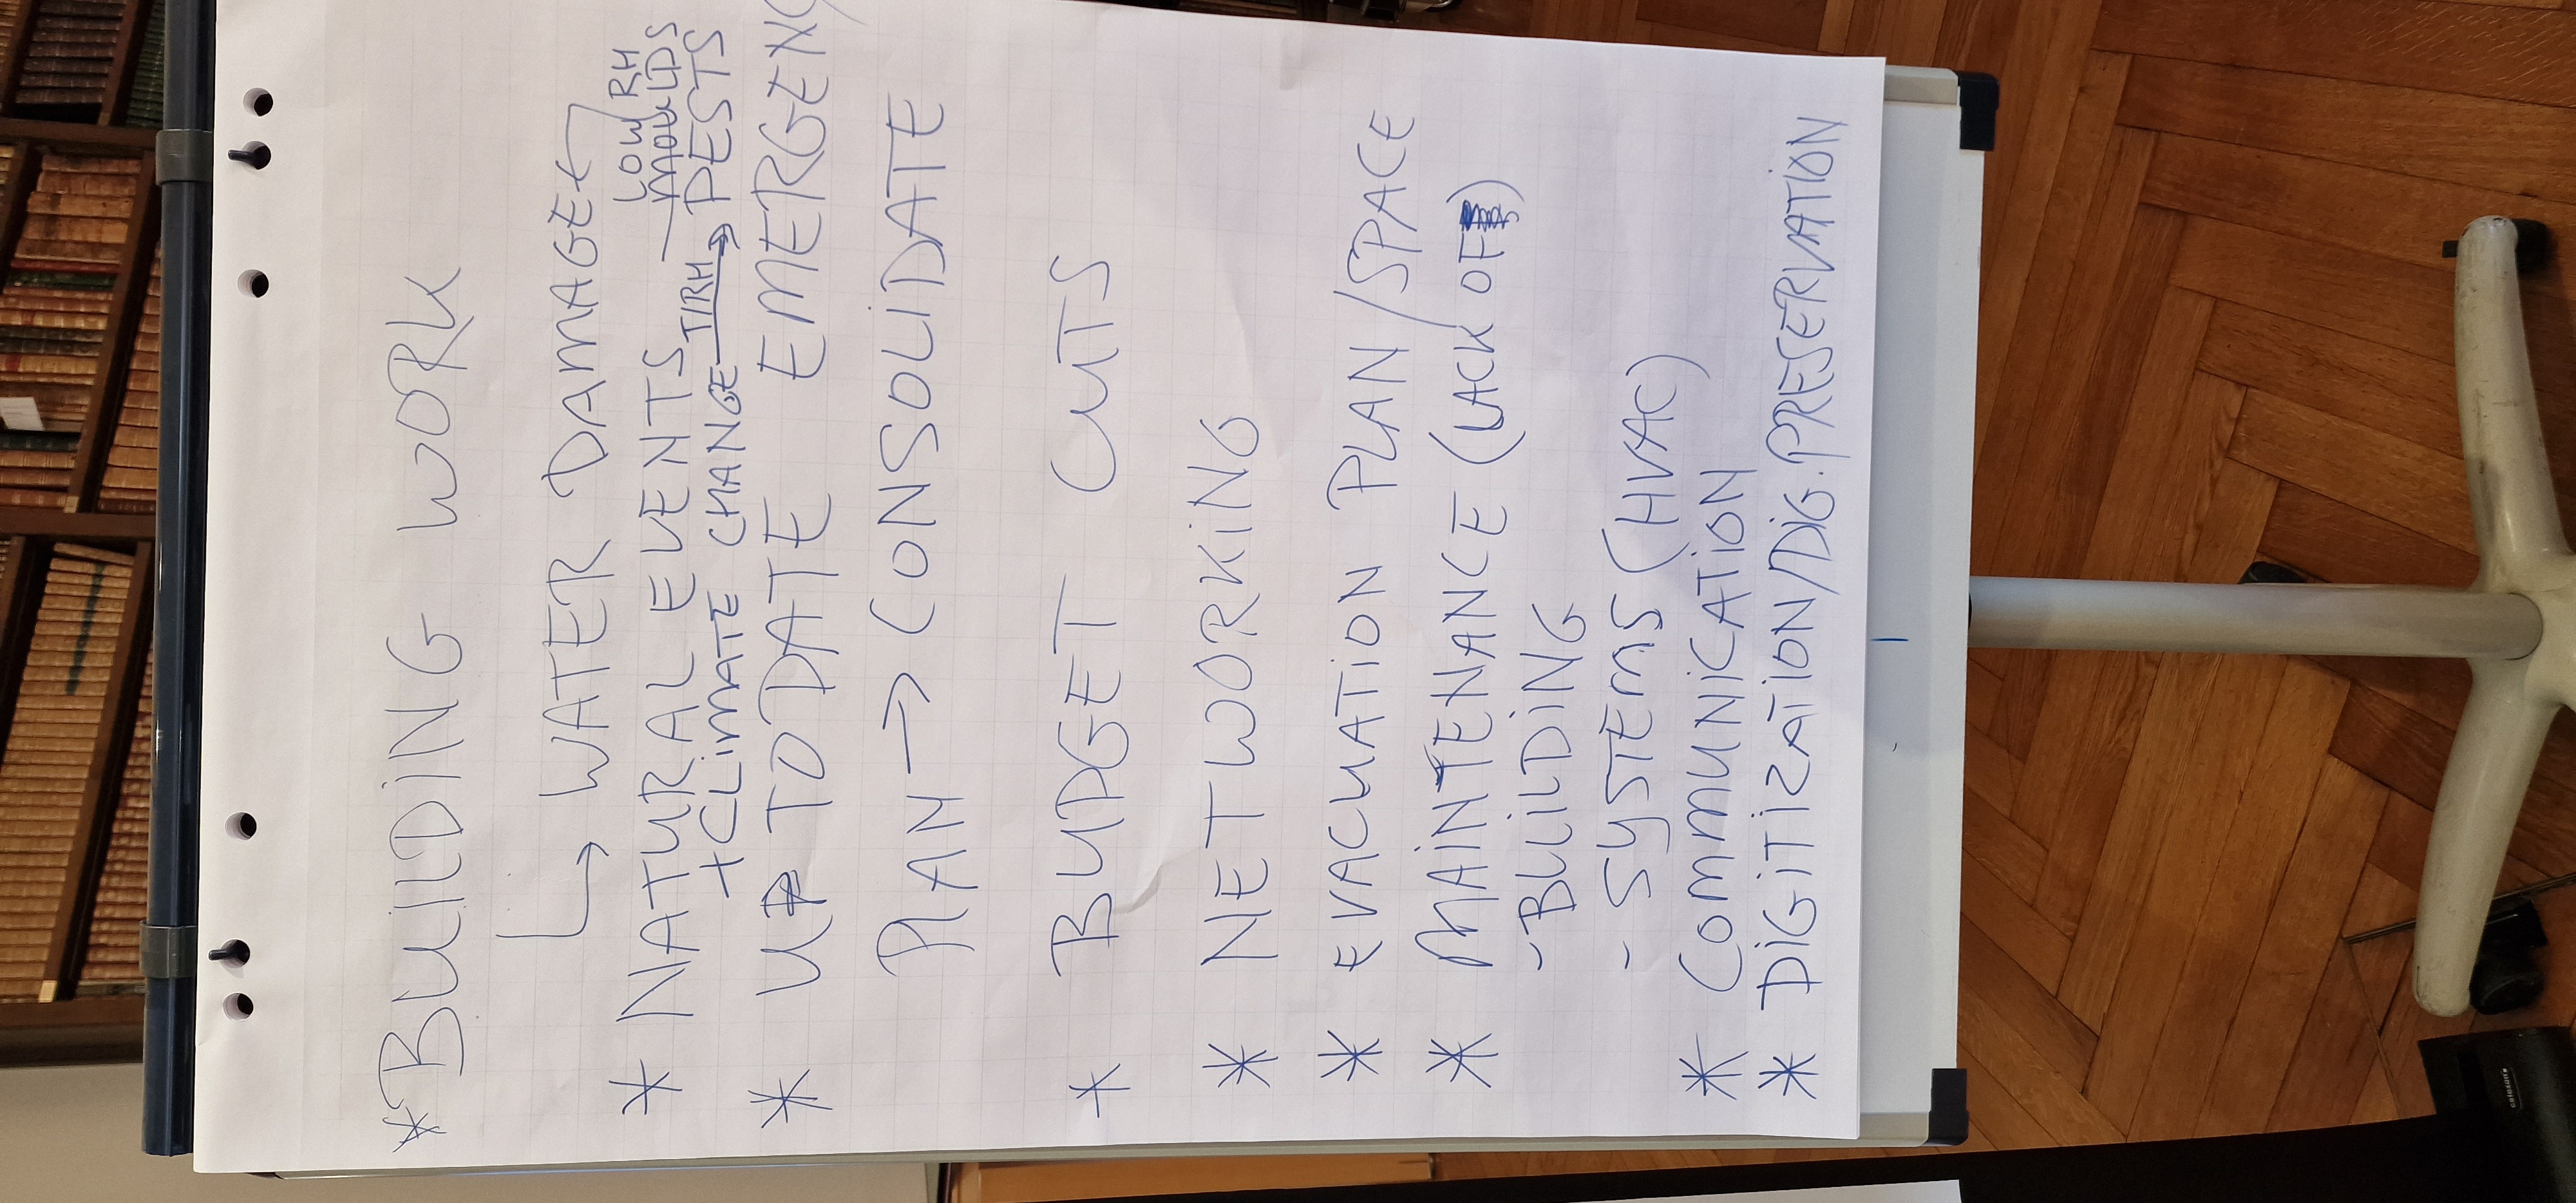 * BUILDING WORK
↳ WATER DAMAGE ← LOW RH
* NATURAL EVENTS — MOULDS
+ CLIMATE CHANGE T/RH → PESTS
* UP TO DATE EMERGENCY
PLAN → CONSOLIDATE
* BUDGET CUTS
* NETWORKING
* EVACUATION PLAN/SPACE
* MAINTENANCE (LACK OF)
- BUILDING
- SYSTEMS (HVAC)
* COMMUNICATION
* DIGITIZATION/DIG. PRESERVATION